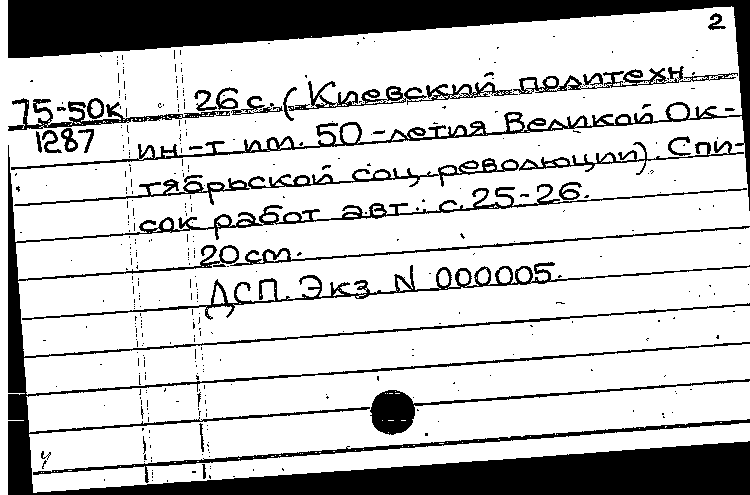 2
75-50к 26 с. (Киевский политехн.
1287 ин-т им. 50-летия Великой Ок-
тябрьской соц. революции). Спи-
сок работ авт.: с. 25-26.
20 см.
ДСП. Экз. N 000005.